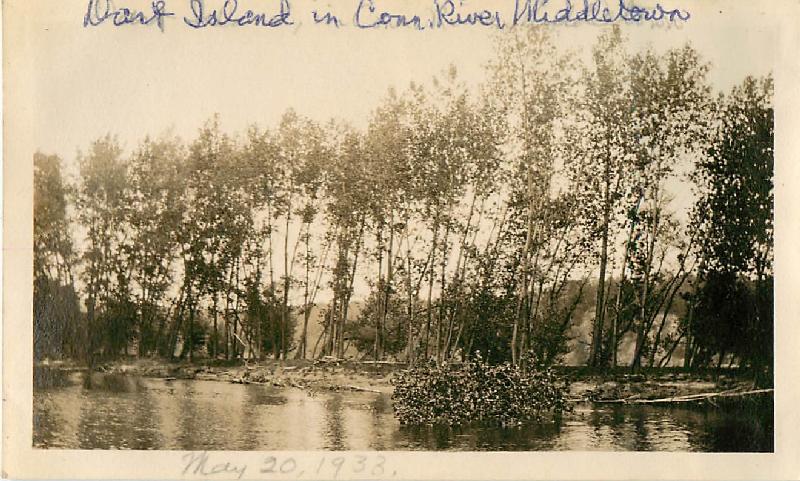 Dart Island in Conn. River Middletown
May 20, 1933.